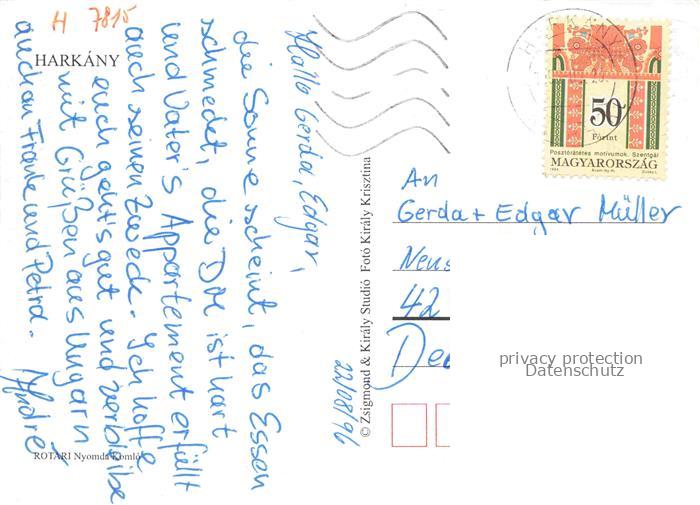 H 7815
HARKÁNY
Hallo Gerda, Edgar,
die Sonne scheint, das Essen
schmeckt, die DM ist hart
und Vater's Appartement erfüllt
auch seinen Zweck. Ich hoffe
euch gehts gut und verbleibe
mit Grüßen aus Ungarn
auch an Frank und Petra.
André
22/08/96
© Zsigmond & Király Studió Fotó Király Krisztina
ROTARI Nyomda Komló
HARKÁNY
50
Forint
Posztórátétes motívumok. Szentgál
MAGYARORSZÁG
1994
An
Gerda + Edgar Müller
Neus
42
Deu
privacy protection
Datenschutz